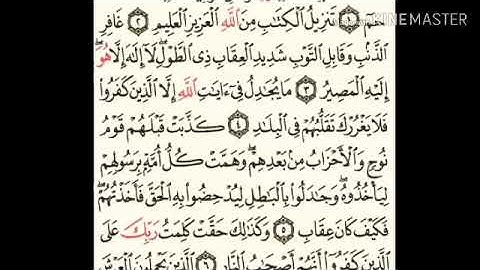 INEMASTER
حمٓ ١ تَنزِيلُ ٱلۡكِتَٰبِ مِنَ ٱللَّهِ ٱلۡعَزِيزِ ٱلۡعَلِيمِ ٢ غَافِرِ
ٱلذَّنۢبِ وَقَابِلِ ٱلتَّوۡبِ شَدِيدِ ٱلۡعِقَابِ ذِي ٱلطَّوۡلِۖ لَآ إِلَٰهَ إِلَّا هُوَۖ
إِلَيۡهِ ٱلۡمَصِيرُ ٣ مَا يُجَٰدِلُ فِيٓ ءَايَٰتِ ٱللَّهِ إِلَّا ٱلَّذِينَ كَفَرُواْ
فَلَا يَغۡرُرۡكَ تَقَلُّبُهُمۡ فِي ٱلۡبِلَٰدِ ٤ كَذَّبَتۡ قَبۡلَهُمۡ قَوۡمُ
نُوحٖ وَٱلۡأَحۡزَابُ مِنۢ بَعۡدِهِمۡۖ وَهَمَّتۡ كُلُّ أُمَّةِۭ بِرَسُولِهِمۡ
لِيَأۡخُذُوهُۖ وَجَٰدَلُواْ بِٱلۡبَٰطِلِ لِيُدۡحِضُواْ بِهِ ٱلۡحَقَّ فَأَخَذۡتُهُمۡۖ
فَكَيۡفَ كَانَ عِقَابِ ٥ وَكَذَٰلِكَ حَقَّتۡ كَلِمَتُ رَبِّكَ عَلَى
ٱلَّذِينَ كَفَرُوٓاْ أَنَّهُمۡ أَصۡحَٰبُ ٱلنَّارِ ٦ ٱلَّذِينَ يَحۡمِلُونَ ٱلۡعَرۡشَ